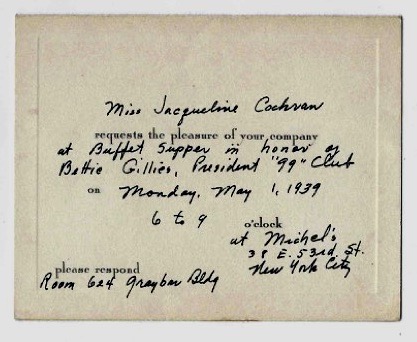 Miss Jacqueline Cochran
requests the pleasure of your company
at Buffet Supper in honor of
Bettie Gillies, President "99" Club
on Monday, May 1, 1939
6 to 9 o'clock
at Michel's
38 E. 53rd. St.
New York City
please respond
Room 624 Graybar Bldg